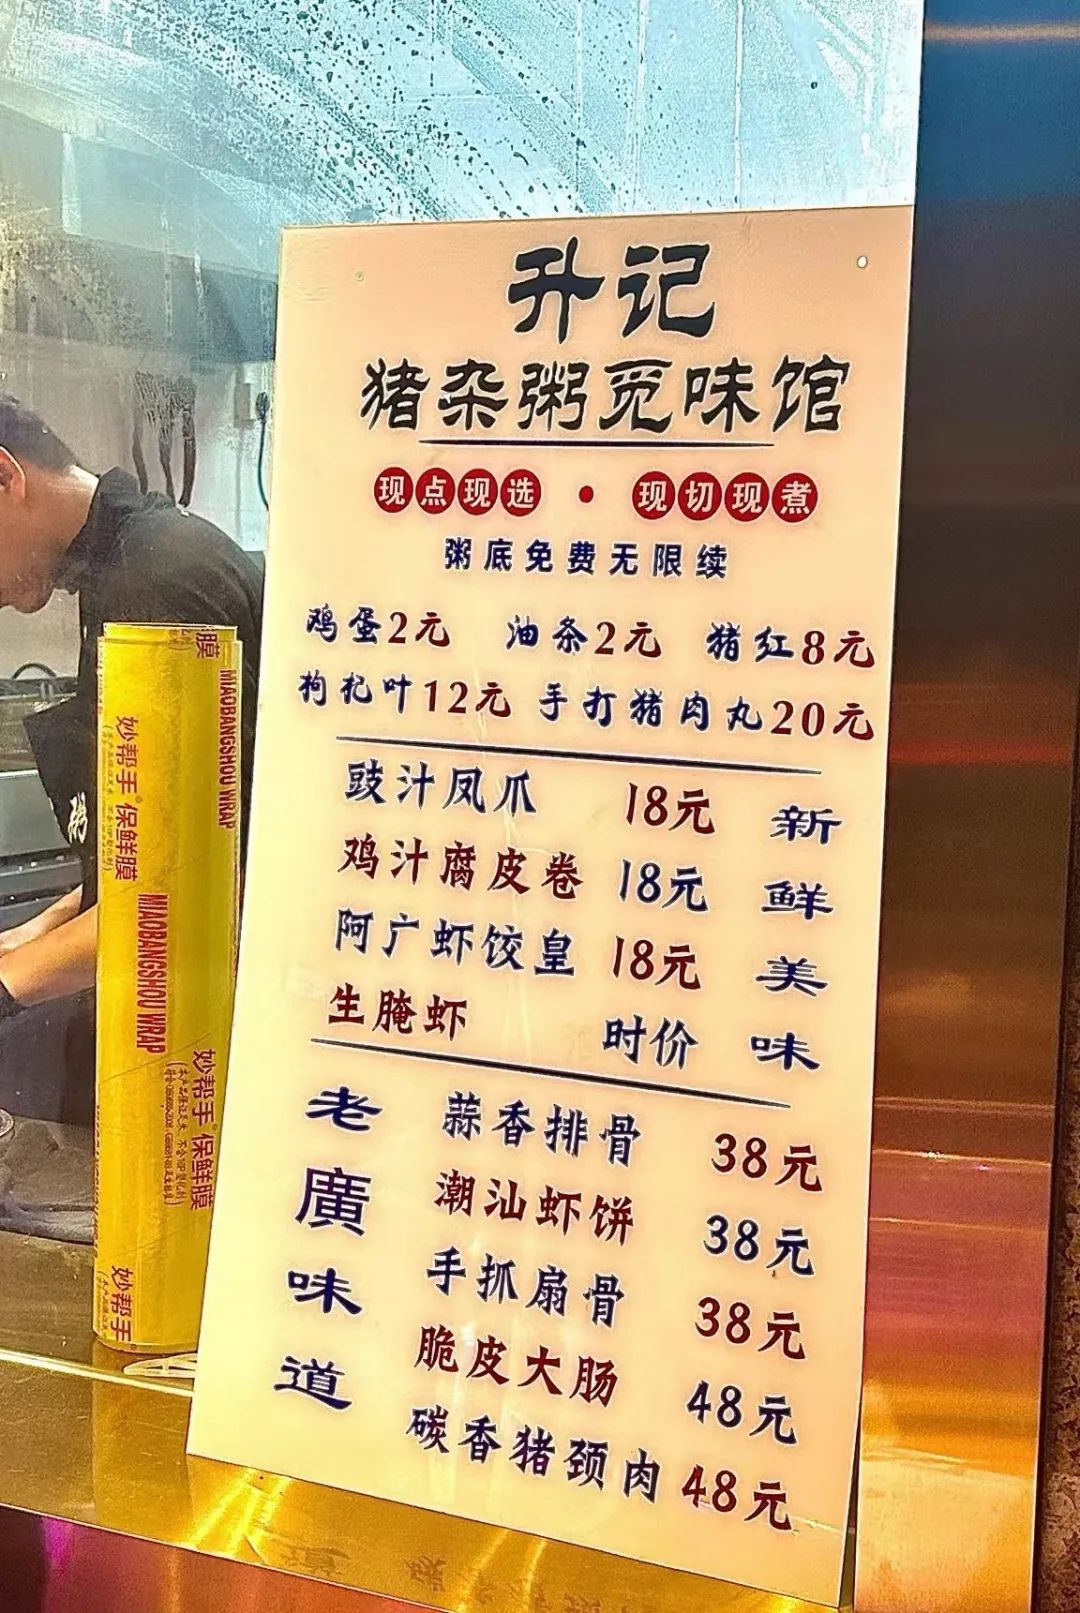 升记
猪杂粥觅味馆
现点现选·现切现煮
粥底免费无限续
鸡蛋2元 油条2元 猪红8元
枸杞叶12元 手打猪肉丸20元
豉汁凤爪 18元
鸡汁腐皮卷 18元
阿广虾饺皇 18元
生腌虾 时价
新鲜美味
老廣味道
蒜香排骨 38元
潮汕虾饼 38元
手抓扇骨 38元
脆皮大肠 48元
碳香猪颈肉 48元
粥
膜
MIAOBANGSHOU WRAP
妙帮手®保鲜膜
MIAOBANGSHOU WRAP
妙帮手®保鲜膜
妙帮手